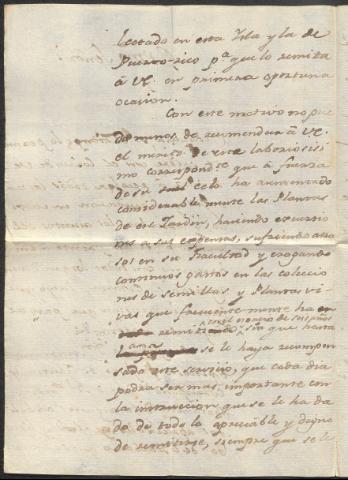 lectado en esta Isla y la de
Puerto-rico pa. que lo remita
à VE. en primera oportuna
ocasion.
Con este motivo no pue
do menos de recomendar à VE.
el merito de este laboriosisi
mo correspondte. que à fuerza
de su celo ha aumentado
considerablemente las Plantas
de ese Jardin, haciendo excursio
nes a sus expensas, sufriendo atra
sos en su Facultad y erogando
continuos gastos en las coleccio
nes de semillas y Plantas vi
vas que frecuentemente ha
remitido, sin que hasta
se le haya recompen
sado este servicio, que cada dia
podra ser mas importante con
la instruccion que se le ha da
do de todo lo apreciable y digno
de remitirse, siempre que se le